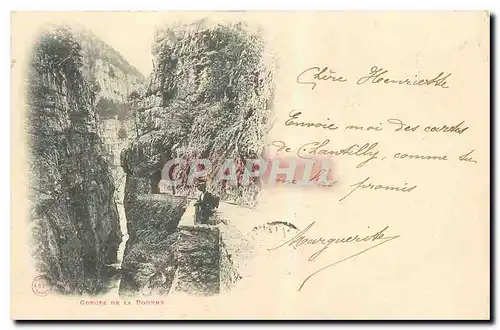 Chère Henriette
Envoie moi des cartes
de Chantilly, comme tu
me l'as promis
Marguerite
CPARAMA
GORGES DE LA BOURNE